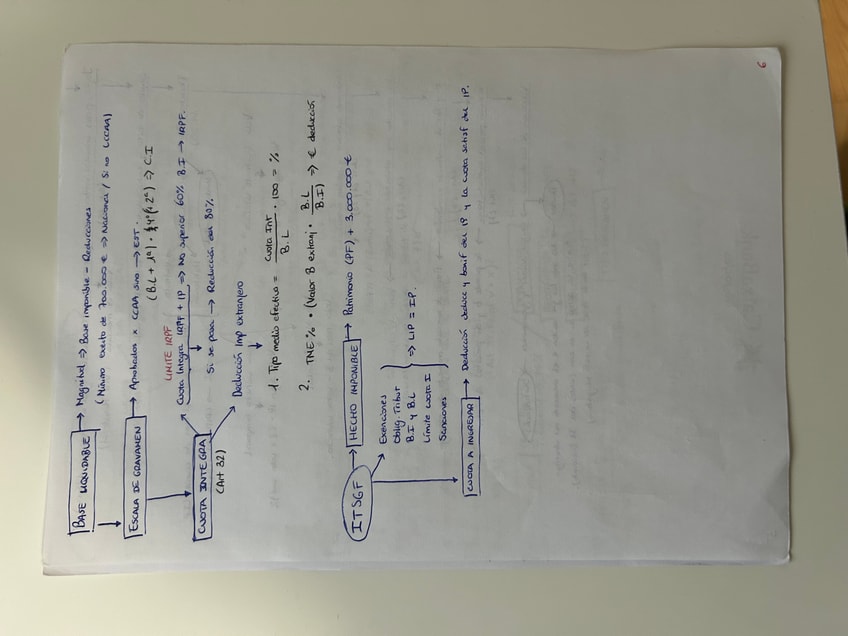 BASE LIQUIDABLE → Magnitud ⇒ Base imponible - Reducciones
(Mínimo exento de 700.000 € ⇒ Nacional / Si no LCCAA)
ESCALA DE GRAVAMEN → Aprobados x CCAA sino → EST.
(B.L + 1º) · 4º(i 2º) ⇒ C.I
LIMITE IRPF
CUOTA INTEGRA
(Art 32)
Cuota Integra IRPF + IP ⇒ No superior 60% B.I → IRPF.
Si se pasa → Reducción del 80%.
Deducción Imp extranjero
1. Tipo medio efectivo = Cuota Int / B.L · 100 = %
2. TME % · (Valor B extranj · B.L / B.I) ⇒ € deducción
ITSGF → HECHO IMPONIBLE → Patrimonio (PF) + 3.000.000 €
Exenciones
Oblig. Tribut
B.I y B.L
⇒ LIP = IP.
Límite cuota I
Sanciones
CUOTA A INGRESAR → Deducción deducc y bonif del IP y la cuota satisf del IP.
6